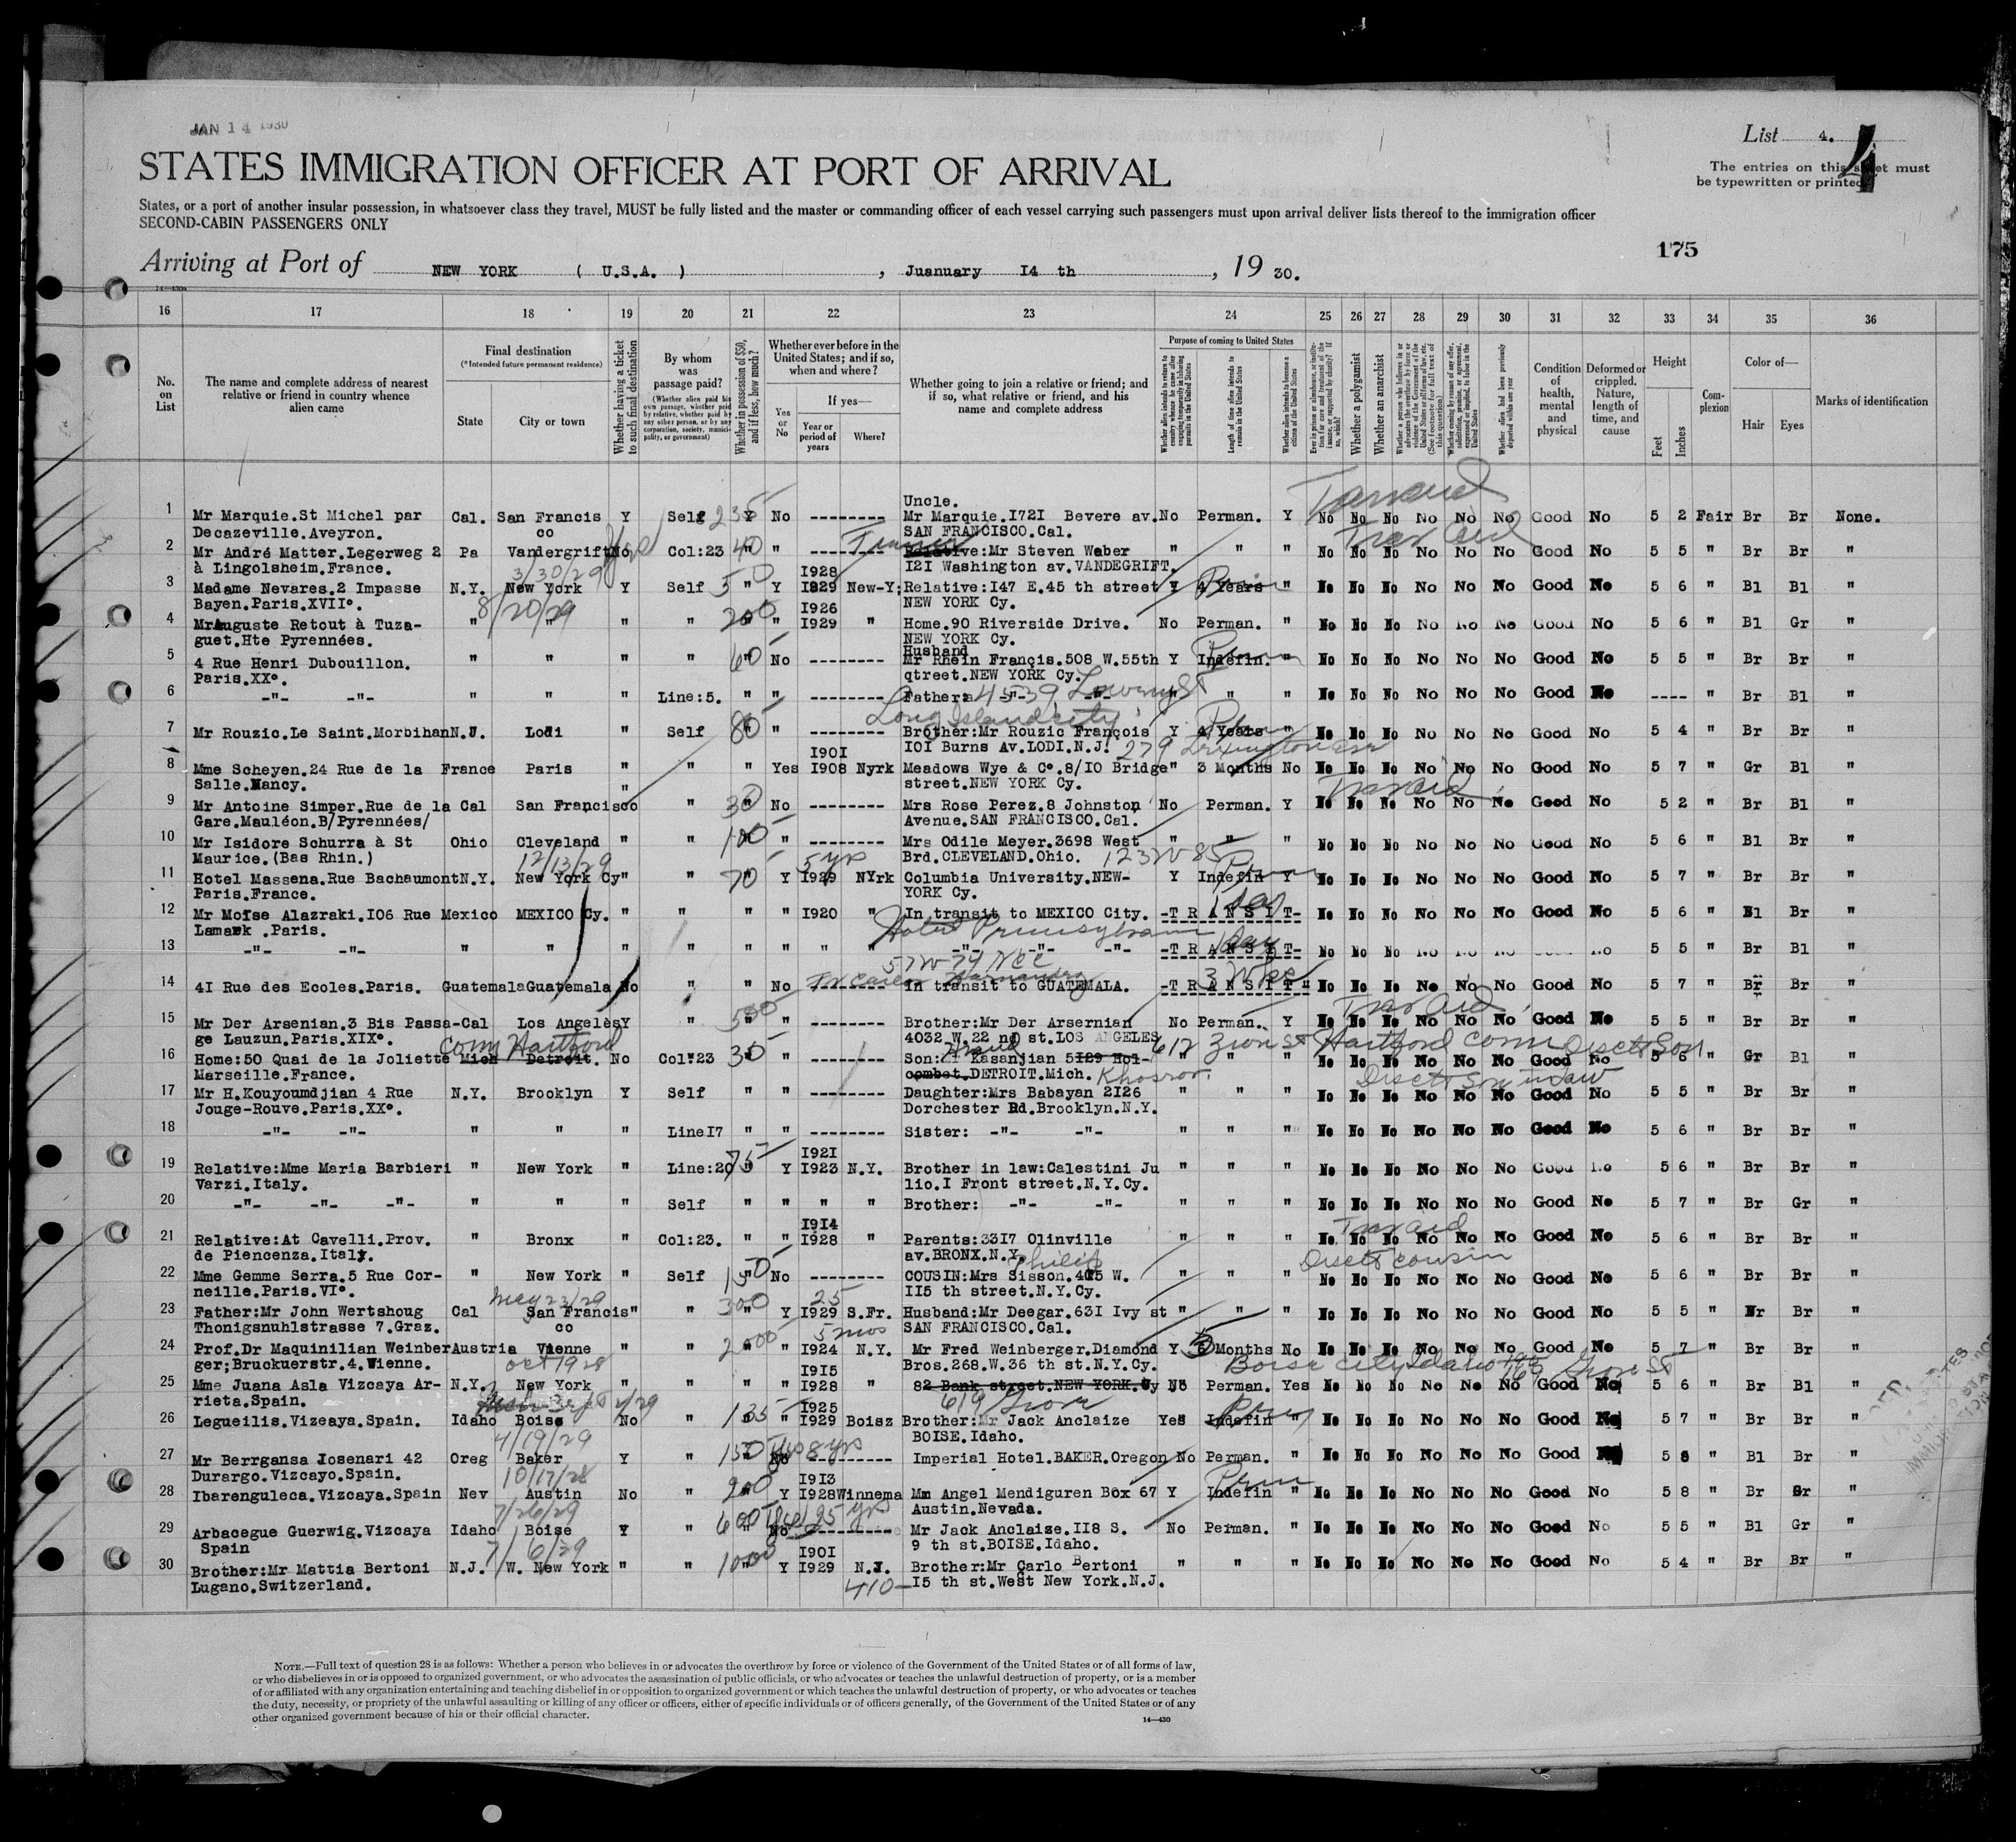 JAN 14 1930
List 4.
4
The entries on this sheet must
be typewritten or printed
STATES IMMIGRATION OFFICER AT PORT OF ARRIVAL
States, or a port of another insular possession, in whatsoever class they travel, MUST be fully listed and the master or commanding officer of each vessel carrying such passengers must upon arrival deliver lists thereof to the immigration officer
SECOND-CABIN PASSENGERS ONLY
175
Arriving at Port of NEW YORK ( U.S.A. ) , Juanuary I4 th , 19 30.
16 17 18 19 20 21 22 23 24 25 26 27 28 29 30 31 32 33 34 35 36
No. on List
The name and complete address of nearest relative or friend in country whence alien came
Final destination
(*Intended future permanent residence)
State City or town
Whether having a ticket to such final destination
By whom was passage paid?
(Whether alien paid his own passage, whether paid by relative, whether paid by any other person, or by any corporation, society, municipality, or government)
Whether in possession of $50, and if less, how much?
Whether ever before in the United States; and if so, when and where?
Yes or No
If yes—
Year or period of years Where?
Whether going to join a relative or friend; and if so, what relative or friend, and his name and complete address
Purpose of coming to United States
Whether alien intends to return to country whence he came after engaging temporarily in laboring pursuits in the United States
Length of time alien intends to remain in the United States
Whether alien intends to become a citizen of the United States
Whether a polygamist
Whether an anarchist
Condition of health, mental and physical
Deformed or crippled. Nature, length of time, and cause
Height
Feet Inches
Complexion
Color of—
Hair Eyes
Marks of identification
1 Mr Marquie.St Michel par Cal. San Francis Y Self 235 Y No -------- Uncle.
Decazeville.Aveyron. co Mr Marquie.I72I Bevere av. No Perman. Y No No No No No No Good No 5 2 Fair Br Br None.
SAN FRANCISCO.Cal.
2 Mr André Matter.Legerweg 2 Pa Vandergrift No Col:23 40 " " -------- Relative:Mr Steven Weber " " " No No No No No No Good No 5 5 " Br Br "
à Lingolsheim.France. I2I Washington av.VANDEGRIFT.
3/30/29 I928
3 Madame Nevares.2 Impasse N.Y. New York Y Self 50 " Y I829 New-Y; Relative:I47 E.45 th street Y 4 Years " No No No No No No Good No 5 6 " Bl Bl "
Bayen.Paris.XVII°. NEW YORK Cy.
8/20/29 I926
4 MrAuguste Retout à Tuza- " " " " 200 " " I929 " Home.90 Riverside Drive. No Perman. " No No No No No No Good No 5 6 " Bl Gr "
guet.Hte Pyrennées. NEW YORK Cy.
Husband
5 4 Rue Henri Dubouillon. " " " " 60 " No -------- Mr Rhein Françis.508 W.55th Y Indefin. " No No No No No No Good No 5 5 " Br Br "
Paris.XX°. qtreet.NEW YORK Cy.
6 -"- -"- " " " Line:5. " " -------- Father: 4539 Lowery St " " " No No No No No No Good No ---- " Br Bl "
Long Island city
7 Mr Rouzic.Le Saint.Morbihan N.J. Lodi " Self 80 " " -------- Brother:Mr Rouzic François Y 4 Years " No No No No No No Good No 5 4 " Br Br "
I0I Burns Av.LODI.N.J. 279 Lexington ave
I90I
8 Mme Scheyen.24 Rue de la France Paris " " " Yes I908 Nyrk Meadows Wye & C°.8/I0 Bridge " 3 Months No No No No No No No Good No 5 7 " Gr Bl "
Salle.Nancy. street.NEW YORK Cy.
9 Mr Antoine Simper.Rue de la Cal San Francisco " " 30 " No -------- Mrs Rose Perez.8 Johnston No Perman. Y No No No No No No Good No 5 2 " Br Bl "
Gare.Mauléon.B/Pyrennées/ Avenue.SAN FRANCISCO.Cal.
10 Mr Isidore Schurra à St Ohio Cleveland " " 100 " " -------- Mrs Odile Meyer.3698 West " " " No No No No No No Good No 5 6 " Bl Br "
Maurice.(Bas Rhin.) Brd.CLEVELAND.Ohio.
12/13/29 5 yrs 123 W 85
11 Hotel Massena.Rue Bachaumont N.Y. New York Cy " " 70 " Y I929 NYrk Columbia University.NEW- Y Indefin Y No No No No No No Good No 5 7 " Br Br "
Paris.France. YORK Cy.
12 Mr Moïse Alazraki.I06 Rue Mexico MEXICO Cy. " " " " I920 " In transit to MEXICO City. -T R A N S I T- No No No No No No Good No 5 6 " Bl Br "
Lamark .Paris. Hotel Pennsylvania
13 -"- -"- " " " " " " " " -"- -"- -"- -T R A N S I T- No No No No No No No 5 5 " Br Bl "
57 W 74 NYC
14 4I Rue des Ecoles.Paris. Guatemala Guatemala No " " No In transit to GUATEMALA. -T R A N S I T " No No No No No No Good No 5 7 " Br Br "
15 Mr Der Arsenian.3 Bis Passa- Cal Los Angeles Y " 500 " " -------- Brother:Mr Der Arsernian No Perman. Y No No No No No No Good No 5 5 " Br Br "
ge Lauzun.Paris.XIX°. 4032 W.22 nd st.LOS ANGELES
Conn Hartford 612 Zion St Hartford Conn
16 Home:50 Quai de la Joliette Mich Detroit. No Col:23 30 " " -------- Son: Kasanjian 5I29 Hol- " " " No No No No No No Good No 5 6 " Gr Bl "
Marseille.France. combet.DETROIT.Mich.
17 Mr H.Kouyoumdjian 4 Rue N.Y. Brooklyn Y Self " " -------- Daughter:Mrs Babayan 2I26 " " " No No No No No No Good No 5 5 " Br Br "
Jouge-Rouve.Paris.XX°. Dorchester Rd.Brooklyn.N.Y.
18 -"- -"- " " " LineI7 " " -------- Sister: -"- -"- " " " No No No No No No Good No 5 6 " Br Br "
I92I
19 Relative:Mme Maria Barbieri " New York " Line:20 75 " Y I923 N.Y. Brother in law:Calestini Ju " " " No No No No No No Good No 5 6 " Br Br "
Varzi.Italy. lio.I Front street.N.Y.Cy.
20 -"- -"- -"- " " " Self " " " " Brother: -"- -"- " " " No No No No No No Good No 5 7 " Br Gr "
I9I4
21 Relative:At Cavelli.Prov. " Bronx " Col:23. " " I928 " Parents:33I7 Olinville " " " No No No No No No Good No 5 6 " Br Br "
de Piencenza.Italy. av.BRONX.N.Y.
22 Mme Gemme Serra.5 Rue Cor- " New York " Self 150 " No -------- COUSIN:Mrs Sisson.405 W. " " " No No No No No No Good No 5 6 " Br Br "
neille.Paris.VI°. II5 th street.N.Y.Cy.
May 23/29 25
23 Father:Mr John Wertshoug Cal San Francis " " 300 Y I929 S.Fr. Husband:Mr Deegar.63I Ivy st " " " No No No No No No Good No 5 5 " Br Br "
Thonigsnuhlstrasse 7.Graz. co SAN FRANCISCO.Cal.
5 mos
24 Prof.Dr Maquinilian Weinber Austria Vienne " " 2000 " " I924 N.Y. Mr Fred Weinberger.Diamond Y 5 Months No No No No No No No Good No 5 7 " Br Br "
ger;Bruckuerstr.4.Wienne. Bros.268.W.36 th st.N.Y.Cy.
Oct 1928 I9I5 Boise City Idaho
25 Mme Juana Asla Vizcaya Ar- N.Y. New York " " " " I928 " 82 Bank street.NEW YORK.Cy No Perman. Yes No No No No No No Good No 5 6 " Br Bl "
rieta.Spain. 619 Grove
I925
26 Legueilis.Vizeaya.Spain. Idaho Boise No " 135 " " I929 Boisz Brother:Mr Jack Anclaize Yes Indefin " No No No No No No Good No 5 7 " Br Br "
4/19/29 BOISE.Idaho.
27 Mr Berrgansa Josenari 42 Oreg Baker Y " 150 " No Yes 8 yrs ---------- Imperial Hotel.BAKER.Oregon No Perman. " No No No No No No Good No 5 8 " Bl Br "
Durargo.Vizcayo.Spain. 10/17/28
I9I3
28 Ibarenguleca.Vizcaya.Spain Nev Austin No " 200 " Y I928 Winnema Mm Angel Mendiguren Box 67 Y Indefin " No No No No No No Good No 5 8 " Br Gr "
7/26/29 Austin.Nevada.
29 Arbacegue Guerwig.Vizcaya Idaho Boise Y " 600 " No Yes 25 yrs Mr Jack Anclaize.II8 S. No Perman. " No No No No No No Good No 5 5 " Bl Gr "
Spain 9 th st.BOISE.Idaho.
7/ 6/29 I90I
30 Brother:Mr Mattia Bertoni N.J. W. New York " " 1000 Y I929 N.J. Brother:Mr Carlo Bertoni " " " No No No No No No Good No 5 4 " Br Br "
Lugano.Switzerland. 410- I5 th st.West New York.N.J.
NOTE.—Full text of question 28 is as follows: Whether a person who believes in or advocates the overthrow by force or violence of the Government of the United States or of all forms of law,
or who disbelieves in or is opposed to organized government, or who advocates the assassination of public officials, or who advocates or teaches the unlawful destruction of property, or is a member
of or affiliated with any organization entertaining and teaching disbelief in or opposition to organized government or which teaches the unlawful destruction of property, or who advocates or teaches
the duty, necessity, or propriety of the unlawful assaulting or killing of any officer or officers, either of specific individuals or of officers generally, of the Government of the United States or of any
other organized government because of his or their official character.
14—430